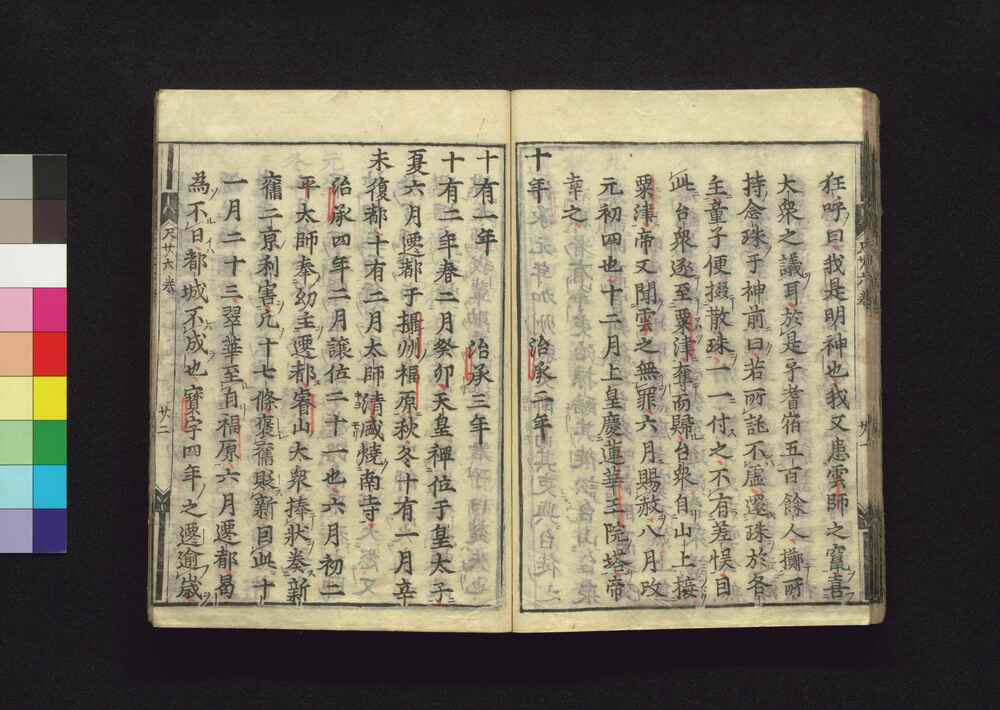 狂呼曰我是明神也我又患雲師之竄喜
大衆之議耳於是乎耆宿五百餘人擲所
持念珠于神前曰若所託不虛還珠於各
主童子便掇散珠一一付之不有差悞自
此台衆逐至粟津奪而歸台衆自山上接
粟津帝又聞雲之無罪六月賜赦八月改
元初四也十二月上皇慶蓮華王院塔帝
幸之
十年 治承二年
十有一年 治承三年
十有二年春二月癸卯天皇禪位于皇太子
夏六月遷都于攝州福原秋冬十有一月辛
未復都十有二月太師清盛燒南寺
治承四年二月讓位二十一也六月初二
平太師奉幼主遷都睿山大衆捧狀奏新
舊二京利害凡十七條褒舊貶新因此十
一月二十三翠華至自福原六月遷都曷
為不日都城不成也寶字四年之遷逾歲
尺廿六卷
廿二
廿一